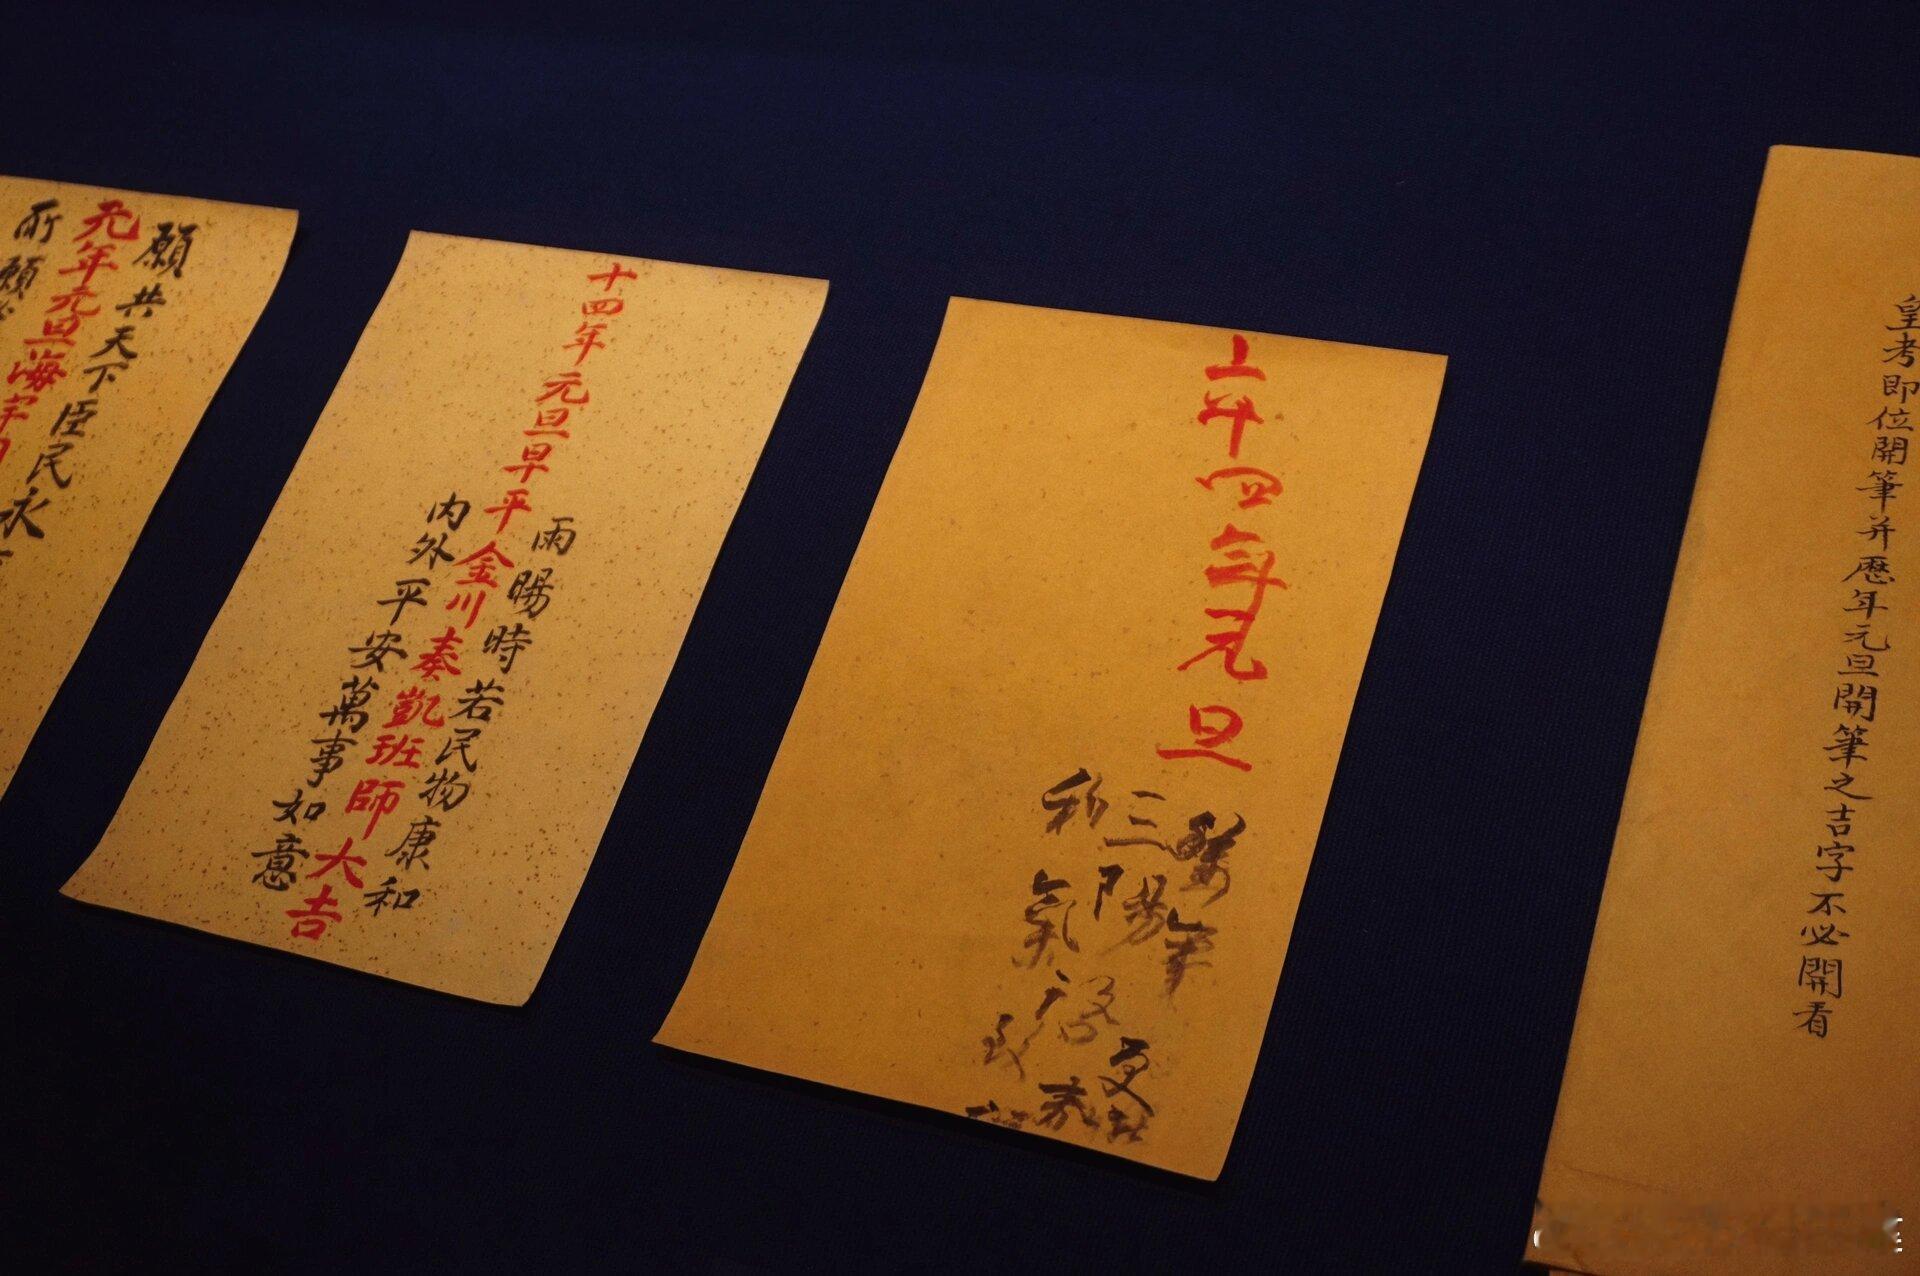 皇考即位開筆并歷年元旦開筆之吉字不必開看
六十四年元旦
筆更
三陽啓泰
和氣致
雨暘時若民物康和
十四年元旦早平金川奏凱班師大吉
內外平安萬事如意
願共天下臣民永
元年元旦海宇
所願